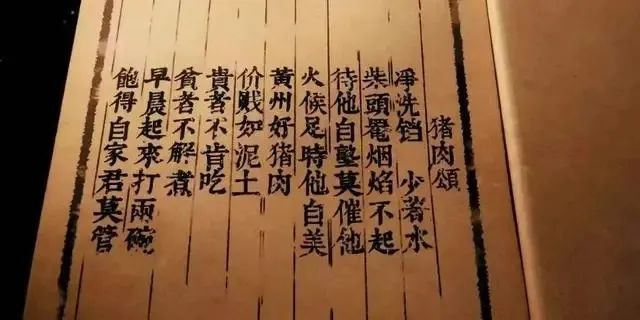 猪肉頌
凈洗铛 少著水
柴頭罨烟焰不起
待他自塾莫催他
火候足時他自美
黄州好猪肉
价贱如泥土
貴者不肯吃
貧者不解煮
早晨起來打兩碗
飽得自家君莫管